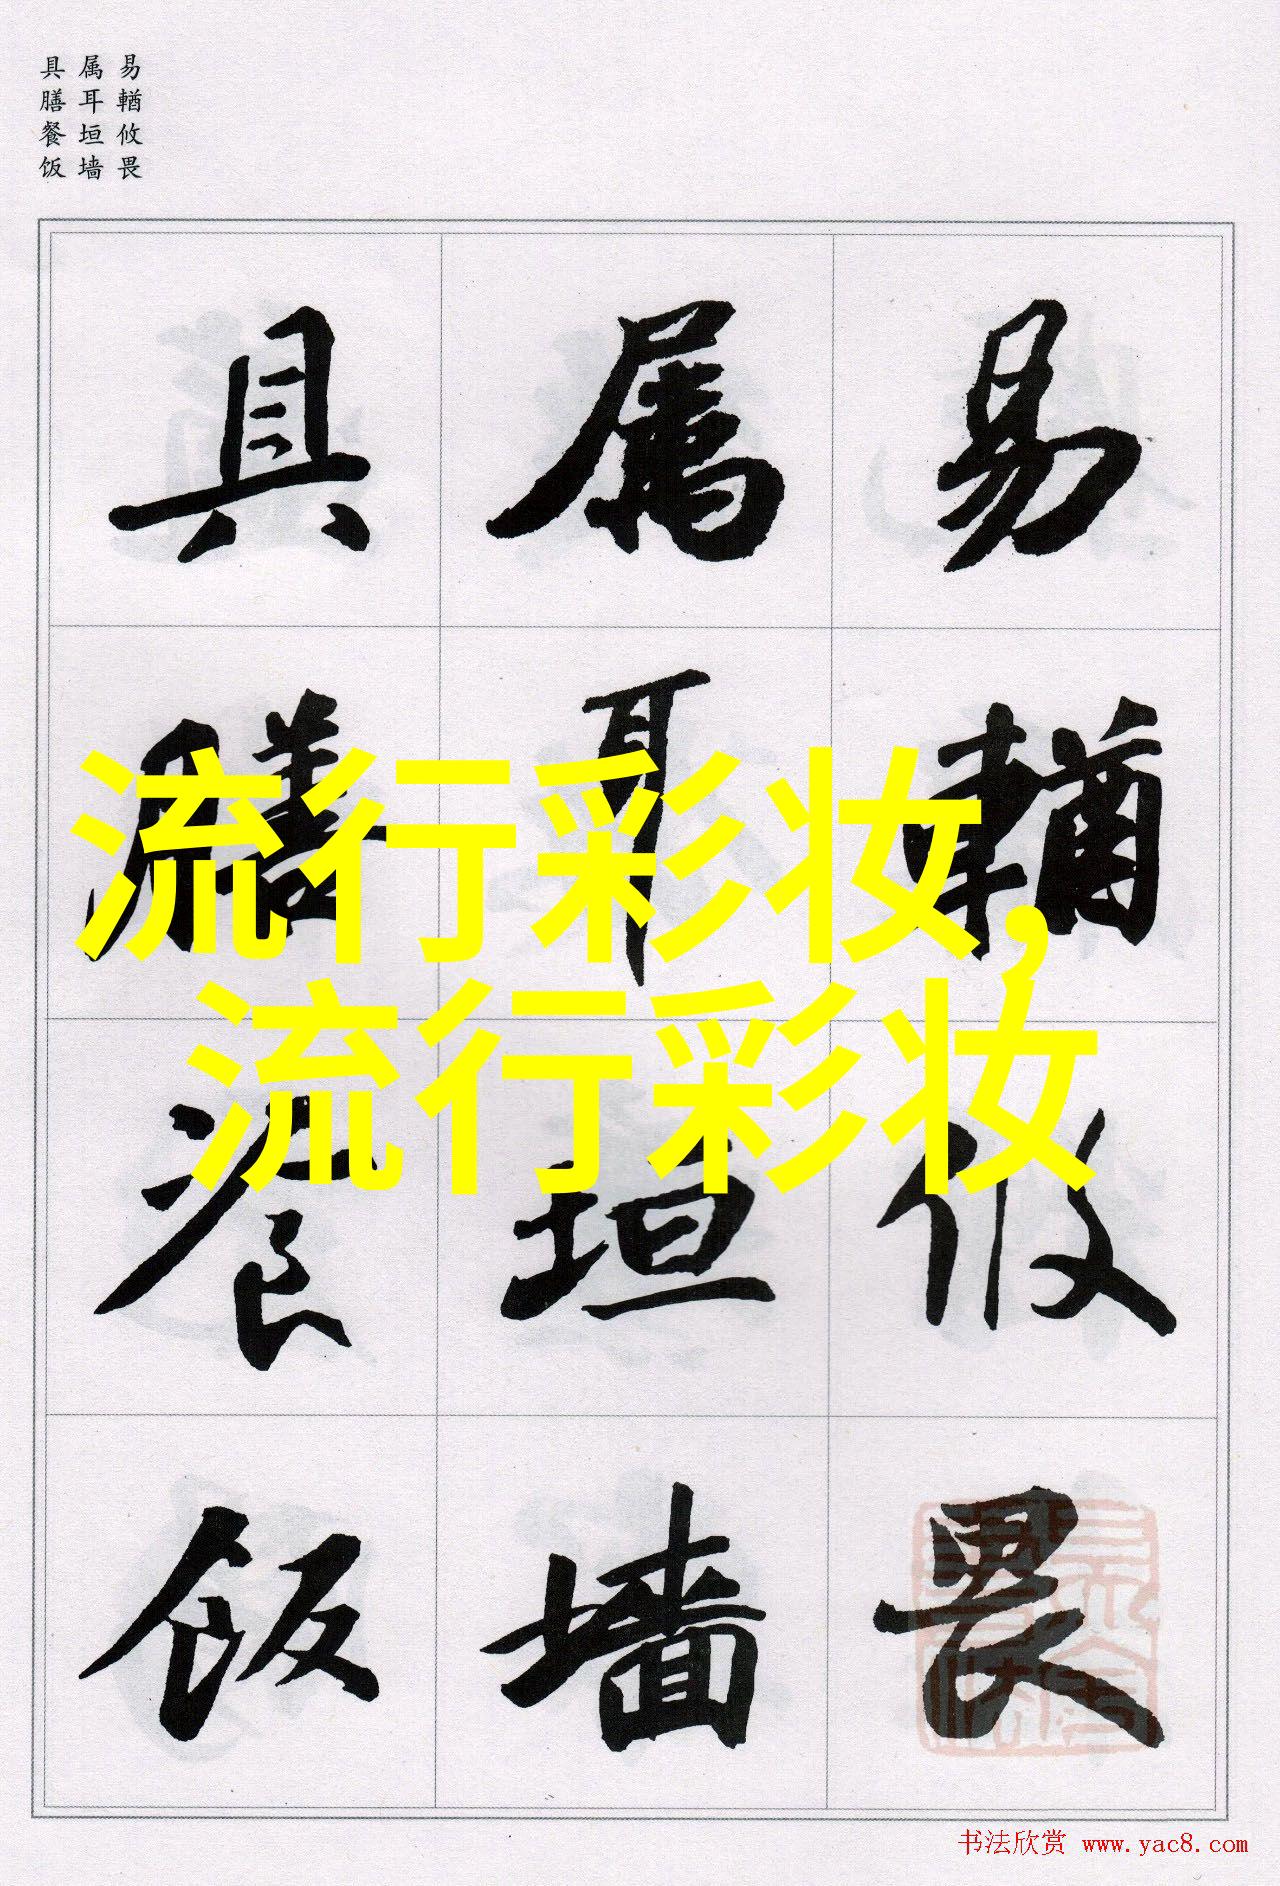 易輶攸畏
属耳垣墙
具膳餐饭
易輶攸畏
属耳垣墙
具膳餐饭
流行彩妆,
流行彩妆
书法欣赏 www.yac8.com